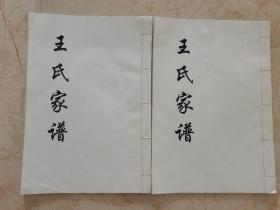 王氏家谱
王氏家谱